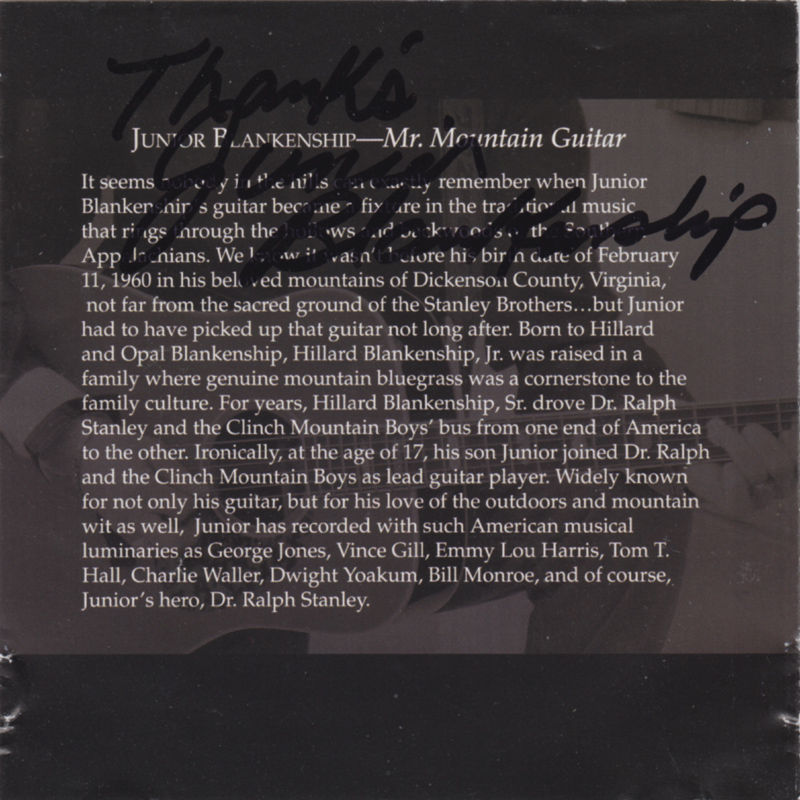 Thank's
Junior
Blankenship
JUNIOR BLANKENSHIP—Mr. Mountain Guitar
It seems nobody in the hills can exactly remember when Junior
Blankenship's guitar became a fixture in the traditional music
that rings through the hollows and backwoods of the Southern
Appalachians. We know it wasn't before his birth date of February
11, 1960 in his beloved mountains of Dickenson County, Virginia,
not far from the sacred ground of the Stanley Brothers…but Junior
had to have picked up that guitar not long after. Born to Hillard
and Opal Blankenship, Hillard Blankenship, Jr. was raised in a
family where genuine mountain bluegrass was a cornerstone to the
family culture. For years, Hillard Blankenship, Sr. drove Dr. Ralph
Stanley and the Clinch Mountain Boys' bus from one end of America
to the other. Ironically, at the age of 17, his son Junior joined Dr. Ralph
and the Clinch Mountain Boys as lead guitar player. Widely known
for not only his guitar, but for his love of the outdoors and mountain
wit as well, Junior has recorded with such American musical
luminaries as George Jones, Vince Gill, Emmy Lou Harris, Tom T.
Hall, Charlie Waller, Dwight Yoakum, Bill Monroe, and of course,
Junior's hero, Dr. Ralph Stanley.